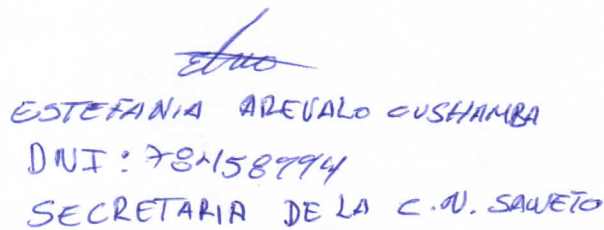 ESTEFANIA AREVALO CUSHAMBA
DNI:
SECRETARIA DE LA C.N. SAWETO